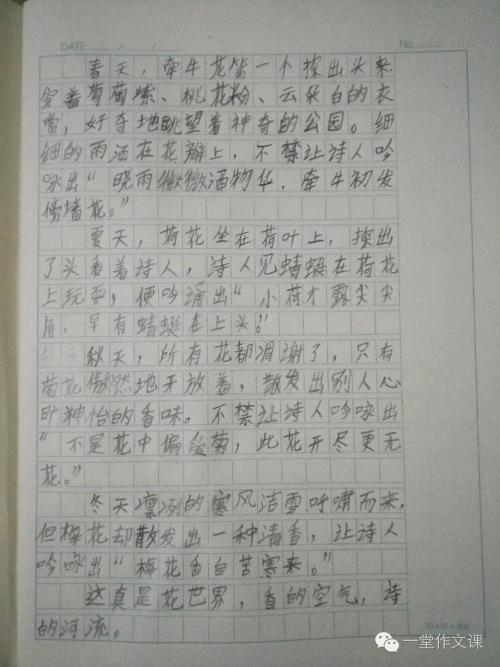 DATE / /
No
春天，牵牛花第一个探出头来
穿着葡萄紫、桃花粉、云朵白的衣
赏，好奇地眺望着神奇的公园。细
细的雨洒在花瓣上，不禁让诗人吟
咏出“晓雨微微洒物华，牵牛初发
傍墙花。”
夏天，荷花坐在荷叶上，探出
了头看着诗人，诗人见蜻蜓在荷花
上玩耍，便吟诵出“小荷才露尖尖
角，早有蜻蜓在上头。”
秋天，所有花都凋谢了，只有
菊花傲然地开放着，散发出别人心
旷神怡的香味。不禁让诗人吟咏出
“不是花中偏爱菊，此花开尽更无
花。”
冬天凛冽的寒风洁雪呼啸而来，
但梅花却散发出一种清香，让诗人
吟咏出“梅花香自苦寒来。”
这真是花世界，香的空气，诗
的河流。
20×15=300
一堂作文课